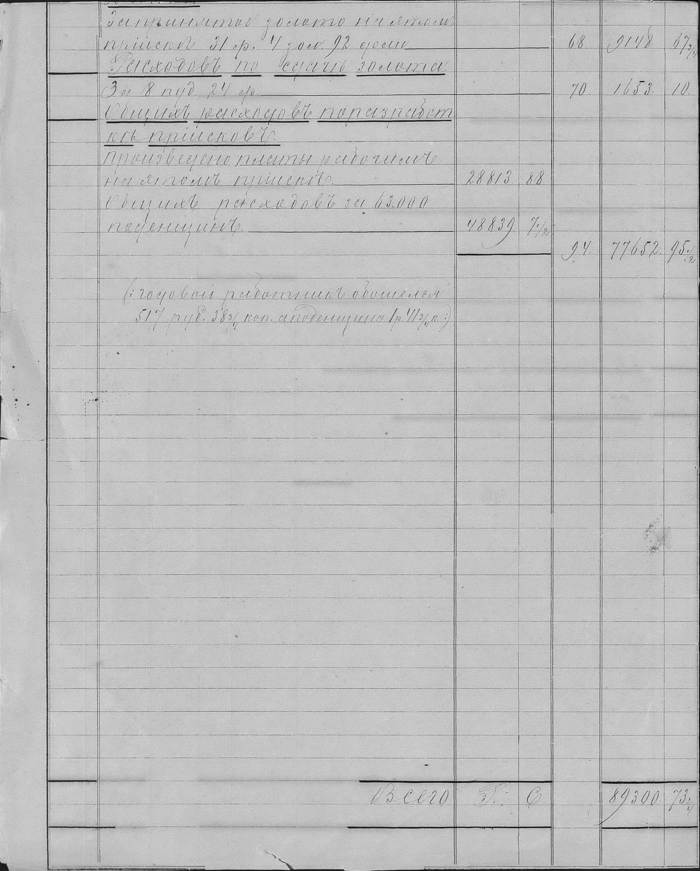 За принятое золото на этомъ
прiискѣ 31 ф. 4 зол. 92 доли 68 9148 67¾
Расходовъ по сдачѣ золота
За 8 пуд. 24 ф. 70. 1653. 10.
Общихъ расходовъ по разработ
кѣ прiисковъ
Произведено платы рабочимъ
на этомъ прiискѣ 28813 88
Общихъ расходовъ за 63.000
поденщинъ 48839. 7½
94. 77652. 95½
(годовой работникъ обошелся
517 руб. 38¾ коп. а поденщина 1 р. 41¾ к.)
Всего 89300. 73¼